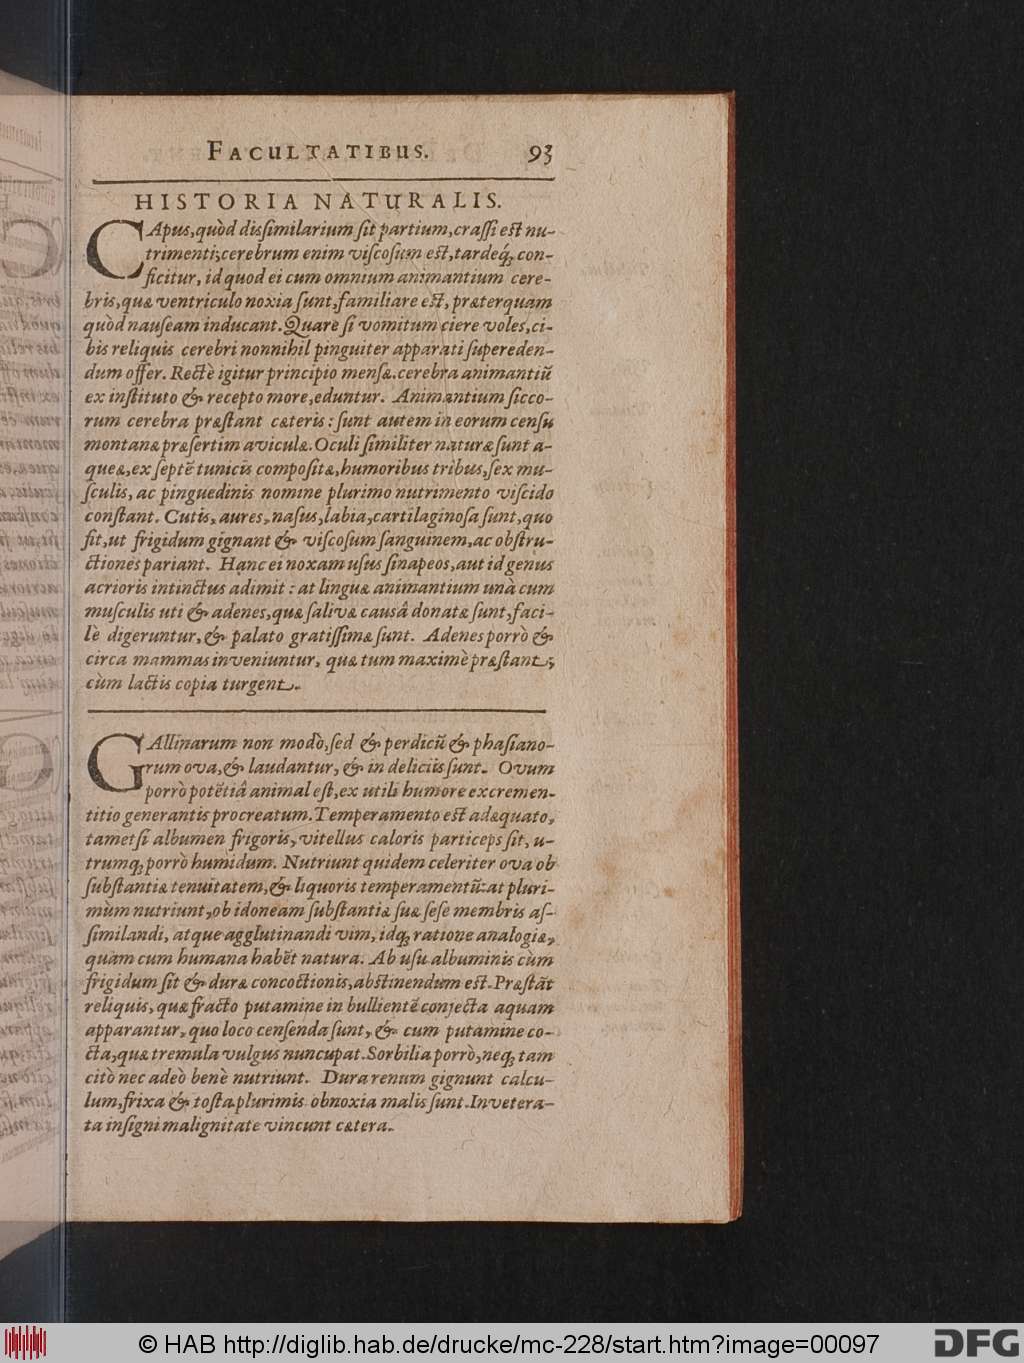 FACULTATIBUS. 93
HISTORIA NATURALIS.
CApus, quòd disſimilarium ſit partium, craſſi est nu-
trimenti; cerebrum enim viſcoſum est, tardeq́; con-
ficitur, id quod ei cum omnium animantium cere-
bris, quæ ventriculo noxia ſunt, familiare est, præterquam
quòd nauſeam inducant. Quare ſi vomitum ciere voles, ci-
bis reliquis cerebri nonnihil pinguiter apparati ſupereden-
dum offer. Rectè igitur principio menſæ. cerebra animantiũ
ex inſtituto & recepto more, eduntur. Animantium ſicco-
rum cerebra præſtant cæteris: ſunt autem in eorum cenſu
montanæ præſertim aviculæ. Oculi ſimiliter naturæ ſunt a-
queæ, ex ſeptẽ tunicis compoſitæ, humoribus tribus, ſex mu-
ſculis, ac pinguedinis nomine plurimo nutrimento viſcido
conſtant. Cutis, aures, naſus, labia, cartilaginoſa ſunt, quo
fit, ut frigidum gignant & viſcoſum ſanguinem, ac obſtru-
ctiones pariant. Hanc ei noxam uſus ſinapeos, aut id genus
acrioris intinctus adimit: at linguæ animantium unà cum
muſculis uti & adenes, quæ ſalivæ causâ donatæ ſunt, faci-
lè digeruntur, & palato gratiſſimæ ſunt. Adenes porrò &
circa mammas inveniuntur, quæ tum maximè præſtant,
cùm lactis copia turgent.
GAllinarum non modò, ſed & perdicũ & phaſiano-
rum ova, & laudantur, & in deliciis ſunt. Ovum
porrò potẽtiâ animal eſt, ex utili humore excremen-
titio generantis procreatum. Temperamento est adæquato,
tametſi albumen frigoris, vitellus caloris particeps ſit, u-
trumq; porrò humidum. Nutriunt quidem celeriter ova ob
ſubſtantiæ tenuitatem, & liquoris temperamentũ: at pluri-
mùm nutriunt, ob idoneam ſubſtantiæ ſuæ ſeſe membris aſ-
ſimilandi, atque agglutinandi vim, idq; ratione analogiæ,
quam cum humana habẽt natura. Ab uſu albuminis cùm
frigidum ſit & duræ concoctionis, abstinendum est. Præſtãt
reliquis, quæ fracto putamine in bullientẽ conjecta aquam
apparantur, quo loco cenſenda ſunt, & cum putamine co-
cta, quæ tremula vulgus nuncupat. Sorbilia porrò, neq; tam
citò nec adeò benè nutriunt. Dura renum gignunt calcu-
lum, frixa & toſta plurimis obnoxia malis ſunt. Invetera-
ta inſigni malignitate vincunt cætera.
© HAB http://diglib.hab.de/drucke/mc-228/start.htm?image=00097
DFG